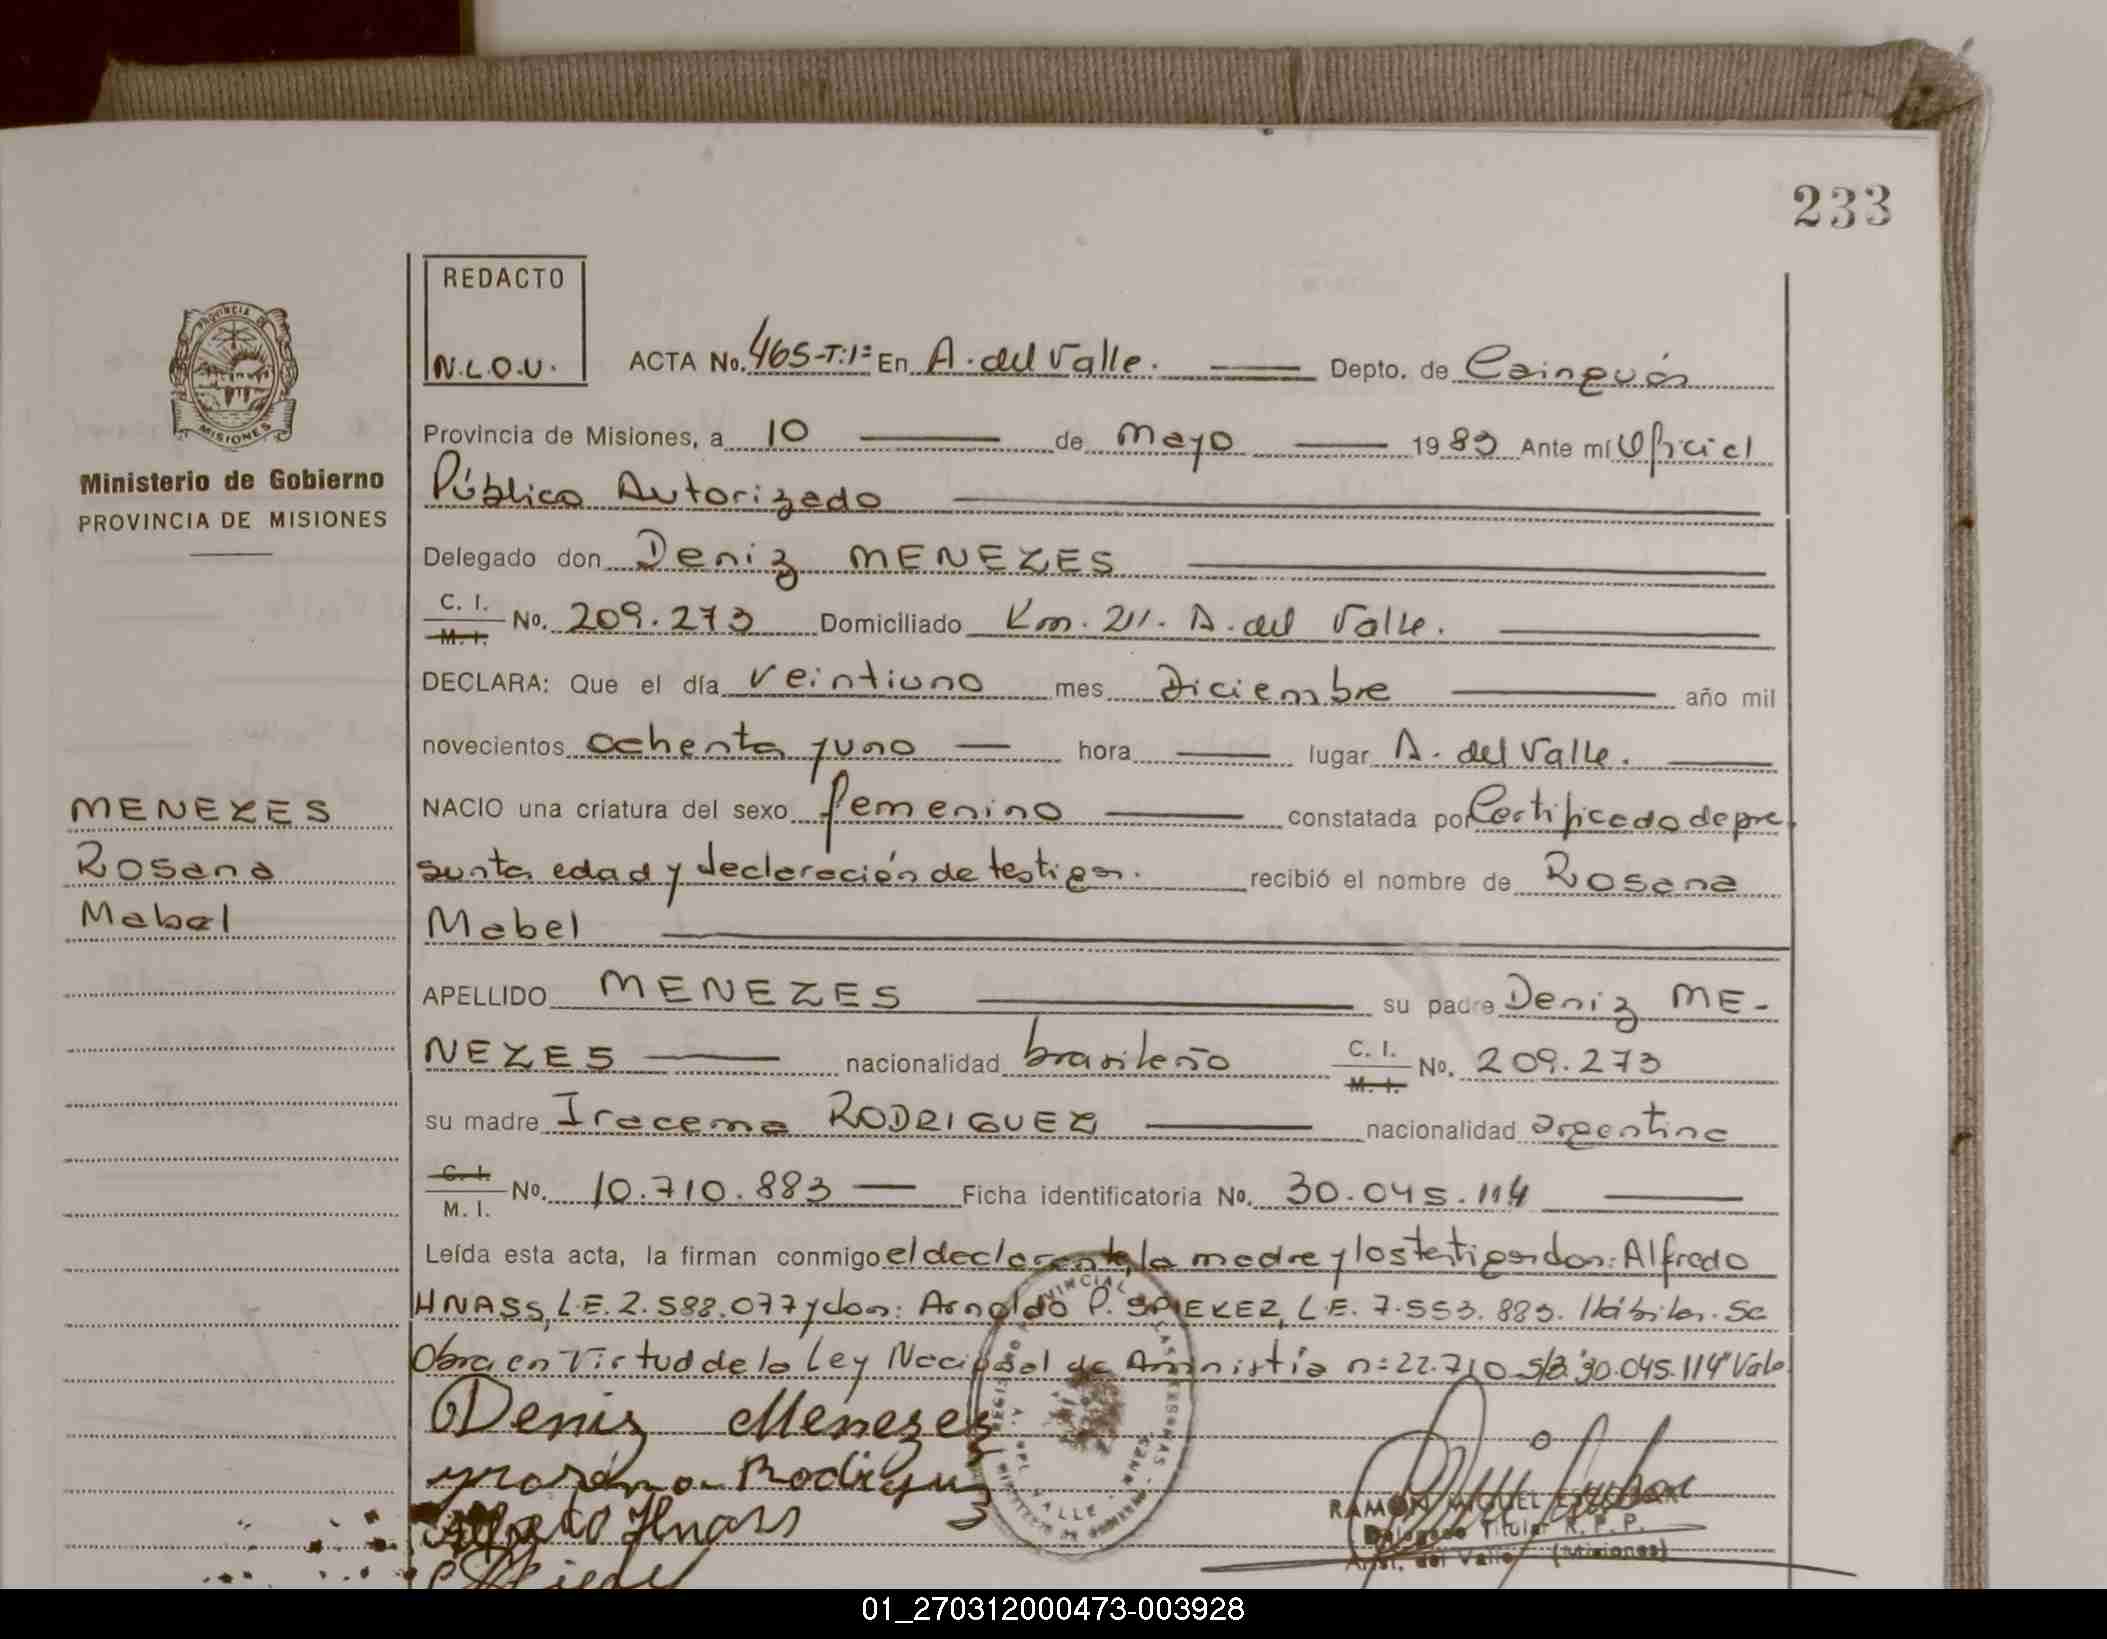 233
REDACTO
N.L.O.U.
ACTA No. 465-T:1º En A. del Valle. Depto. de Cainguás
PROVINCIA DE
MISIONES
Provincia de Misiones, a 10 de Mayo 1983 Ante mí Oficial
Ministerio de Gobierno
PROVINCIA DE MISIONES
Público Autorizado
Delegado don Deniz MENEZES
C. I.
M. I.
No. 209.273 Domiciliado Km. 211. A. del Valle.
DECLARA: Que el día veintiuno mes Diciembre año mil
novecientos ochenta y uno hora lugar A. del Valle.
MENEZES
Rosana
Mabel
NACIO una criatura del sexo femenino constatada por Certificado de pre
sunta edad y declaración de testigos. recibió el nombre de Rosana
Mabel
APELLIDO MENEZES su padre Deniz ME-
NEZES nacionalidad brasileño C. I. M. I. No. 209.273
su madre Iracema RODRIGUEZ nacionalidad argentina
C. I.
M. I.
No. 10.710.883 Ficha identificatoria No. 30.045.114
Leída esta acta, la firman conmigo el declarante, la madre y los testigos don: Alfredo
HNASS, L.E. 2.588.077 y don: Arnoldo P. SPIEKER, L.E. 7.553.883. Hábiles. Se
Obra en Virtud de la Ley Nacional de Amnistía nº 22.710 S/B "30.045.114" Vale
Deniz Menezes
Rodriguez
Alfredo Hnass
RAMON MIGUEL
Delegado Titular R. P. P.
Arist. del Valle (Misiones)
01_270312000473-003928